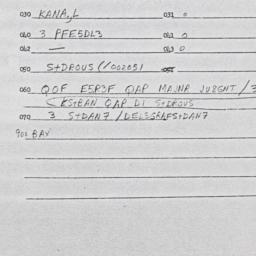 030 KANA,L 031 0
040 3 PFESDL3 041 0
042 — 043 0
050 S+DROUS(/00205)
060 QOF ESP3F QAP MAJNR JUBGNT/3
(ES+BAN QAP DI S+DROUS
070 3 S+DAN7/DELSGRAFS+DAN7
900 BAV